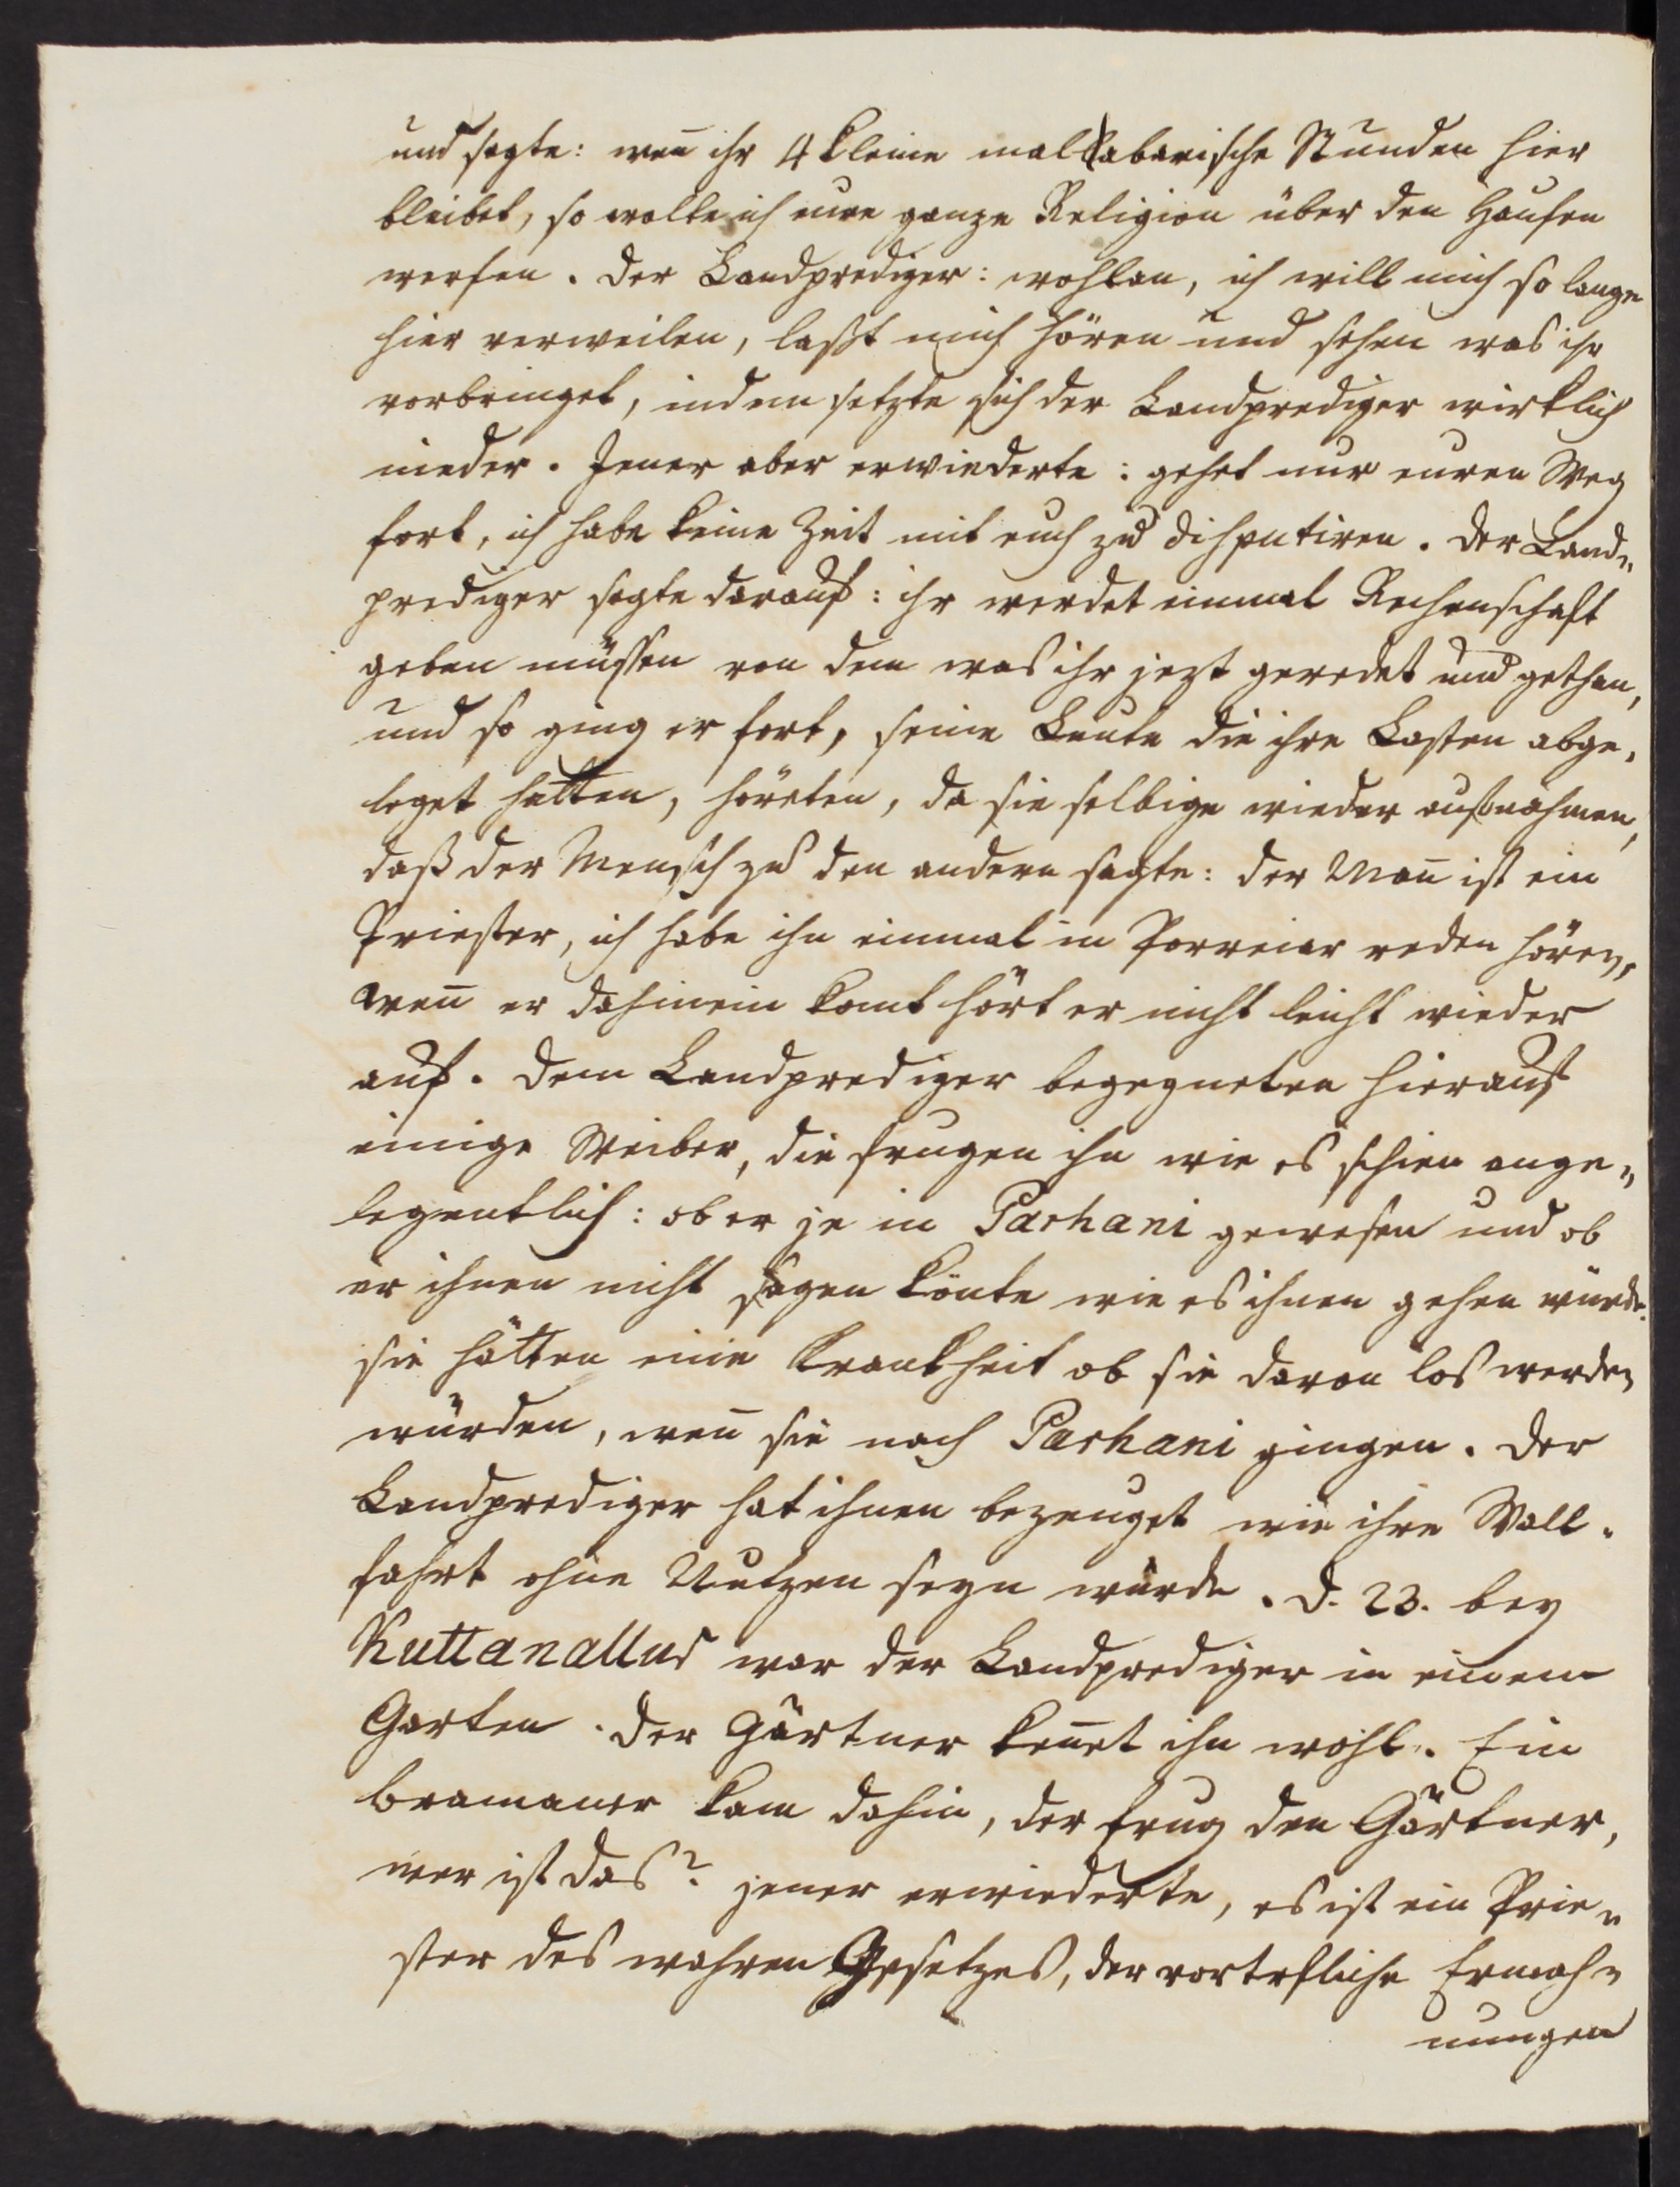 und sagte: weñ ihr 4 kleine malabarische Stunden hier
bleibet, so wolte ich eure ganze Religion über den Haufen
werfen. Der Landprediger: wohlan, ich will mich so lange
hier verweilen, laßt mich hören und sehen was ihr
vorbringet, indem setzte sich der Landprediger wirklich
nieder. Jener aber erwiederte: gehet nur euren Weg
fort, ich habe keine Zeit mit euch zu disputiren. Der Land„
prediger sagte darauf: ihr werdet einmal Rechenschaft
geben müssen von dem was ihr jezt geredet und gethan,
und so ging er fort, seine Leute die ihre Lasten abge„
leget hatten, höreten, da sie selbige wieder aufnahmen,
daß der Mensch zu den andern sagte: der Mañ ist ein
Priester, ich habe ihn einmal in Porreiar reden hören,
weñ er dahinein komt hört er nicht leicht wieder
auf. Dem Landprediger begegneten hierauf
einige Weiber, die frugen ihn wie es schien ange„
legentlich: ob er je in Parhani gewesen und ob
er ihnen nicht sagen könte wie es ihnen gehen würde.
sie hätten eine Krankheit ob sie davon los werden
würden, weñ sie nach Parhani gingen. Der
Landprediger hat ihnen bezeuget wie ihre Wall„
fahrt ohne Nutzen seyn würde. d. 23. bey
Kuttanallur war der Landprediger in einem
Garten. Der Gärtner keñet ihn wohl. Ein
bramaner kam dahin, der frug den Gärtner,
wer ist das? jener erwiederte, es ist ein Prie„
ster des wahren Gesetzes, der vortrefliche Ermah„
nungen